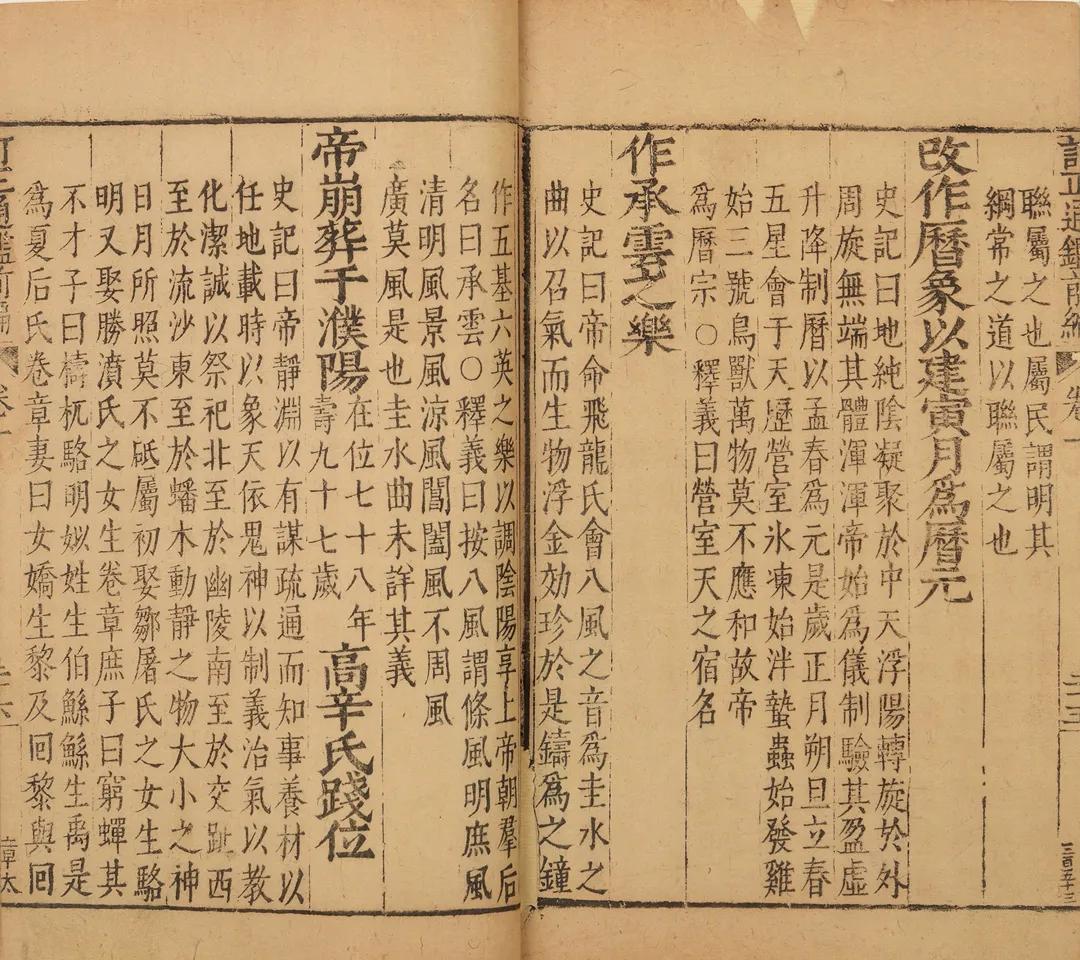 訂正通鑑前編 卷一
聯屬之也屬民謂明其
綱常之道以聯屬之也
改作曆象以建寅月爲曆元
史記曰地純陰凝聚於中天浮陽轉旋於外
周旋無端其體渾渾帝始爲儀制驗其盈虛
升降制曆以孟春爲元是歲正月朔旦立春
五星會于天歷營室氷凍始泮蟄蟲始發雞
始三號鳥獸萬物莫不應和故帝
爲曆宗○釋義曰營室天之宿名
作承雲之樂
史記曰帝命飛龍氏會八風之音爲圭水之
曲以召氣而生物浮金効珍於是鑄爲之鐘
作五基六英之樂以調陰陽享上帝朝羣后
名曰承雲○釋義曰按八風謂條風明庶風
清明風景風涼風閶闔風不周風
廣莫風是也圭水曲未詳其義
帝崩葬于濮陽在位七十八年壽九十七歲高辛氏踐位
史記曰帝靜淵以有謀疏通而知事養材以
任地載時以象天依鬼神以制義治氣以教
化潔誠以祭祀北至於幽陵南至於交趾西
至於流沙東至於蟠木動靜之物大小之神
日月所照莫不砥屬初娶鄒屠氏之女生駱
明又娶勝濆氏之女生卷章庶子曰窮蟬其
不才子曰檮杌駱明姒姓生伯鯀鯀生禹是
爲夏后氏卷章妻曰女嬌生黎及回黎與回
訂正通鑑前編 卷一